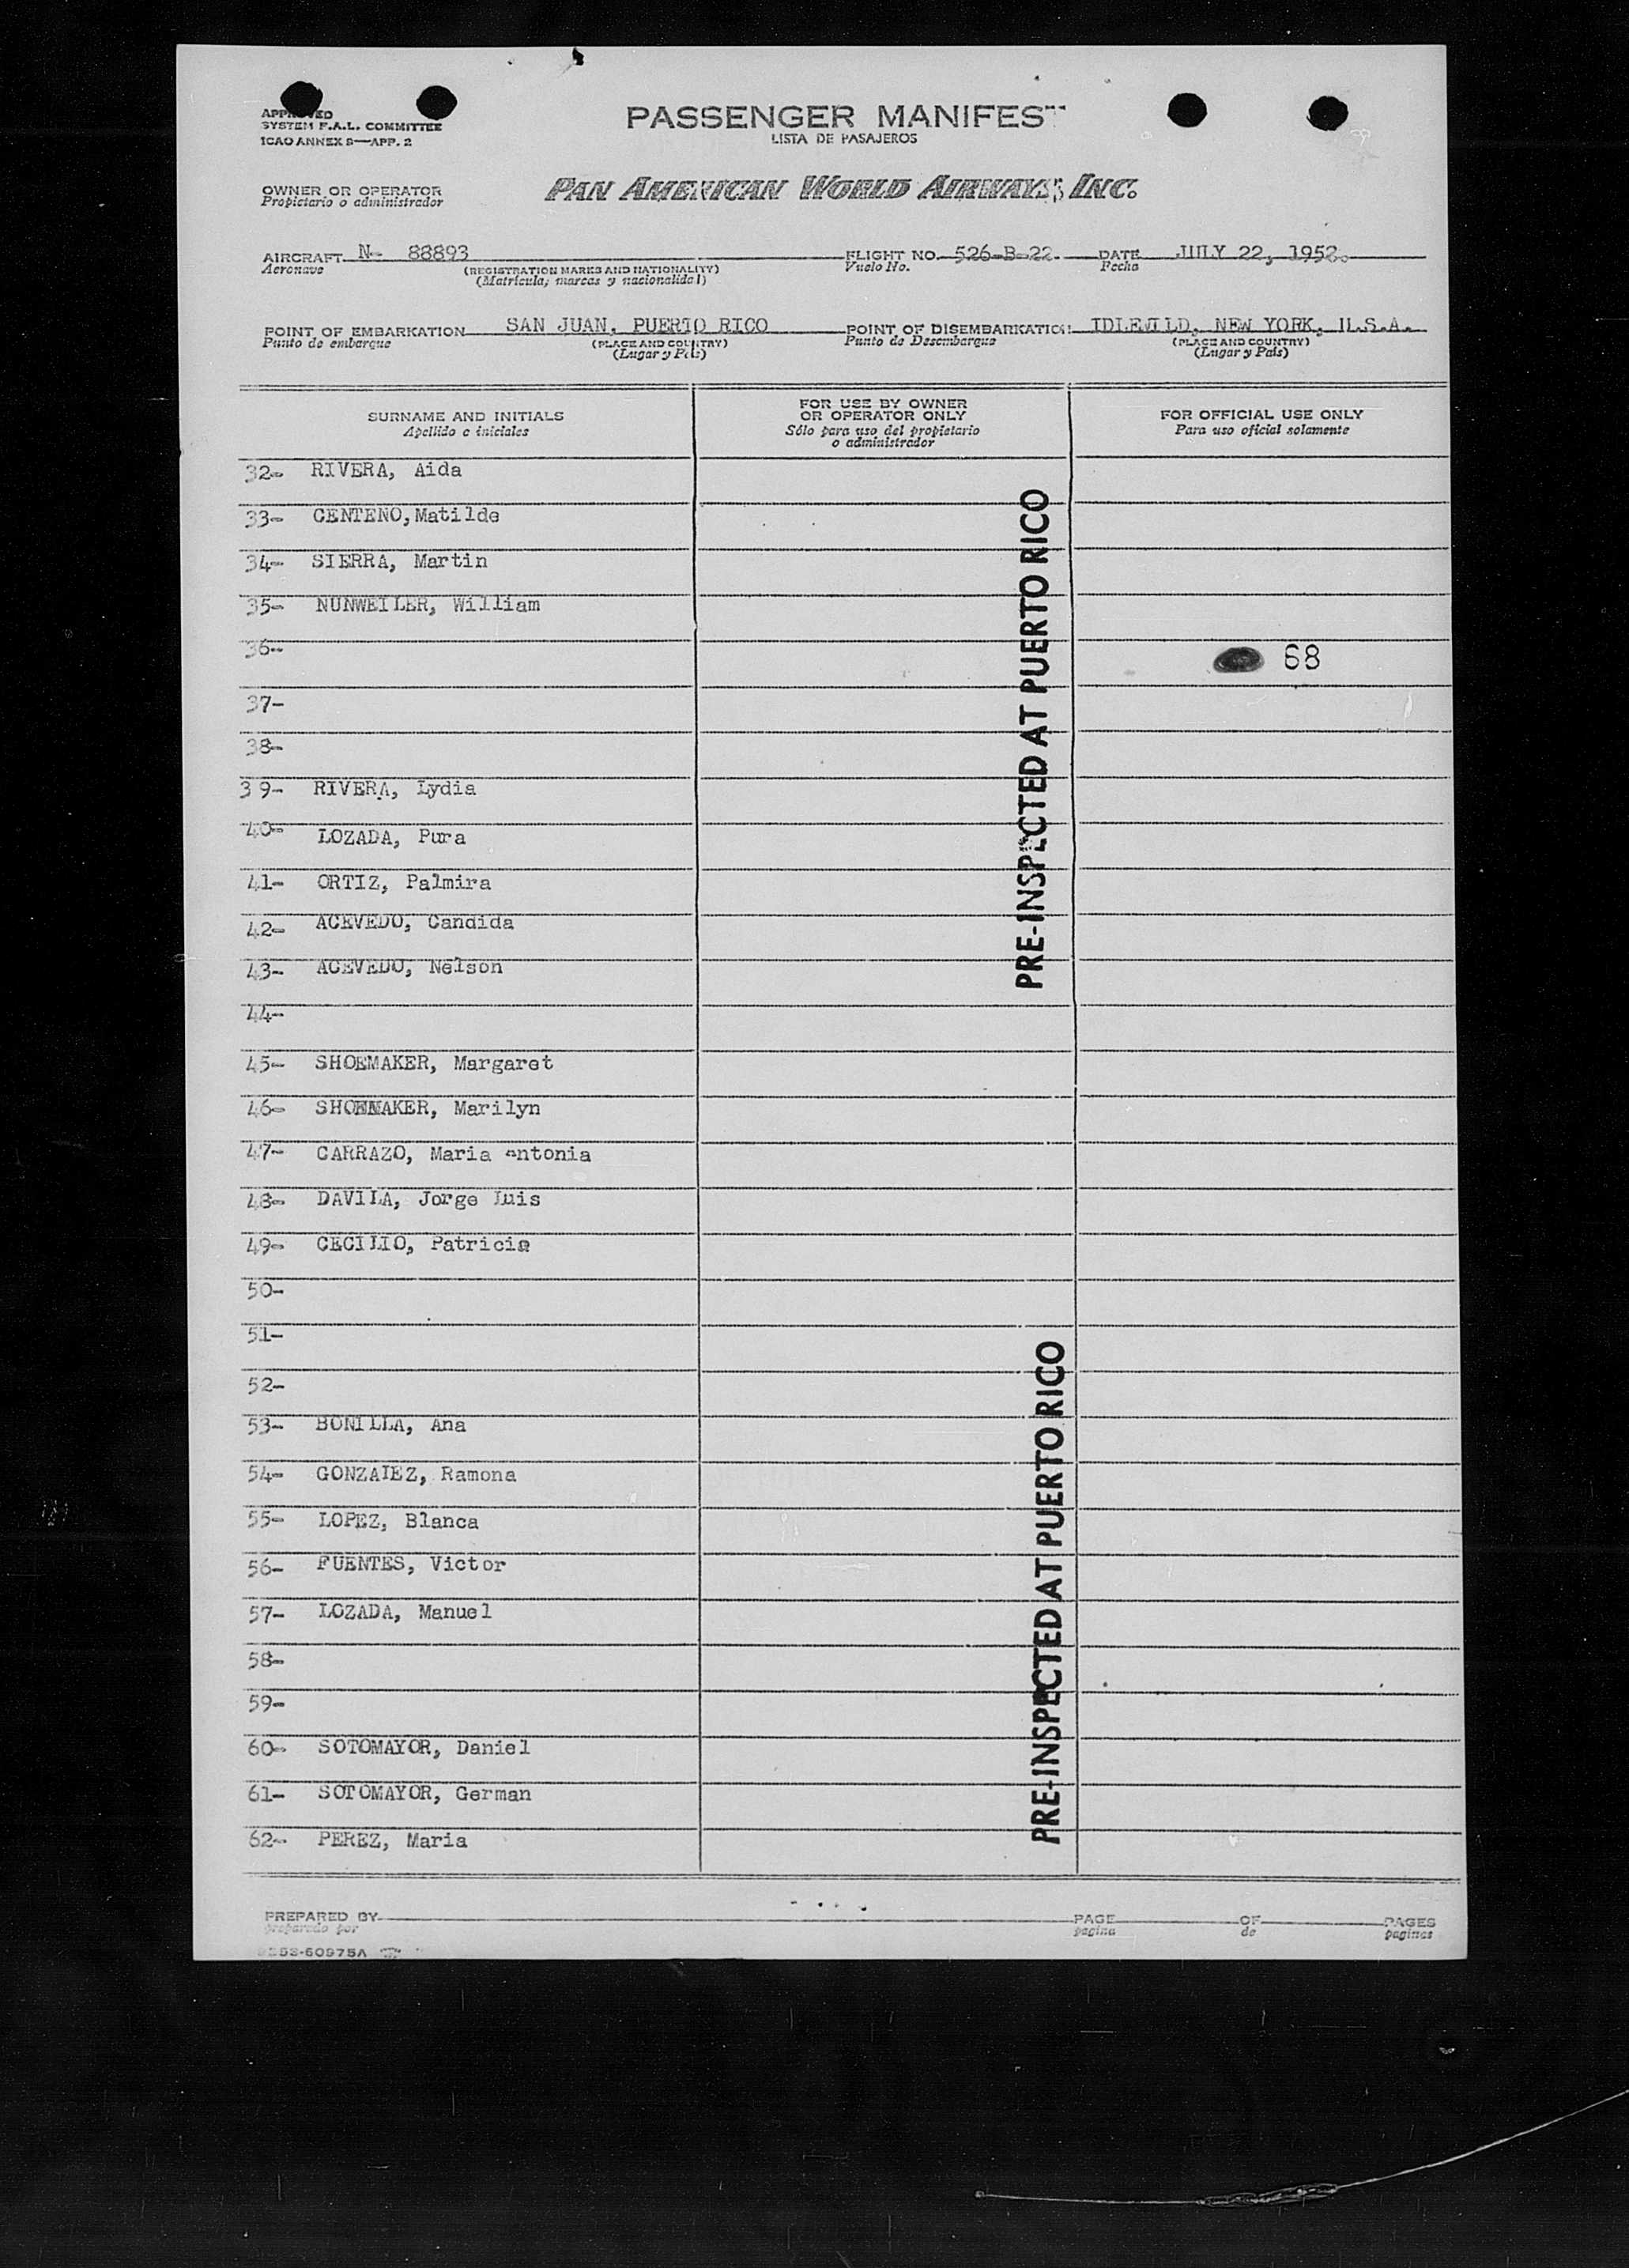 APPROVED
SYSTEM F.A.L. COMMITTEE
ICAO ANNEX 9—APP. 2
PASSENGER MANIFEST
LISTA DE PASAJEROS
OWNER OR OPERATOR
Propietario o administrador
PAN AMERICAN WORLD AIRWAYS, INC.
AIRCRAFT N- 88893
Aeronave
(REGISTRATION MARKS AND NATIONALITY)
(Matricula, marcas y nacionalidad)
FLIGHT NO. 526-B-22.
Vuelo No.
DATE JULY 22, 1952.
Fecha
POINT OF EMBARKATION SAN JUAN, PUERTO RICO
Punto de embarque
(PLACE AND COUNTRY)
(Lugar y País)
POINT OF DISEMBARKATION IDLEWILD, NEW YORK, U.S.A.
Punto de Desembarque
(PLACE AND COUNTRY)
(Lugar y País)
SURNAME AND INITIALS
Apellido e iniciales
FOR USE BY OWNER
OR OPERATOR ONLY
Sólo para uso del propietario
o administrador
FOR OFFICIAL USE ONLY
Para uso oficial solamente
32- RIVERA, Aida
33- CENTENO, Matilde
34- SIERRA, Martin
35- NUNWEILER, William
36-
68
37-
38-
39- RIVERA, Lydia
40- LOZADA, Pura
41- ORTIZ, Palmira
42- ACEVEDO, Candida
43- ACEVEDO, Nelson
44-
PRE-INSPECTED AT PUERTO RICO
45- SHOEMAKER, Margaret
46- SHOEMAKER, Marilyn
47- CARRAZO, Maria Antonia
48- DAVILA, Jorge Luis
49- CECILIO, Patricia
50-
51-
52-
53- BONILLA, Ana
54- GONZALEZ, Ramona
55- LOPEZ, Blanca
56- FUENTES, Victor
57- LOZADA, Manuel
58-
59-
60- SOTOMAYOR, Daniel
61- SOTOMAYOR, German
62- PEREZ, Maria
PRE-INSPECTED AT PUERTO RICO
PREPARED BY
preparado por
PAGE OF PAGES
pagina de paginas
53-60975A